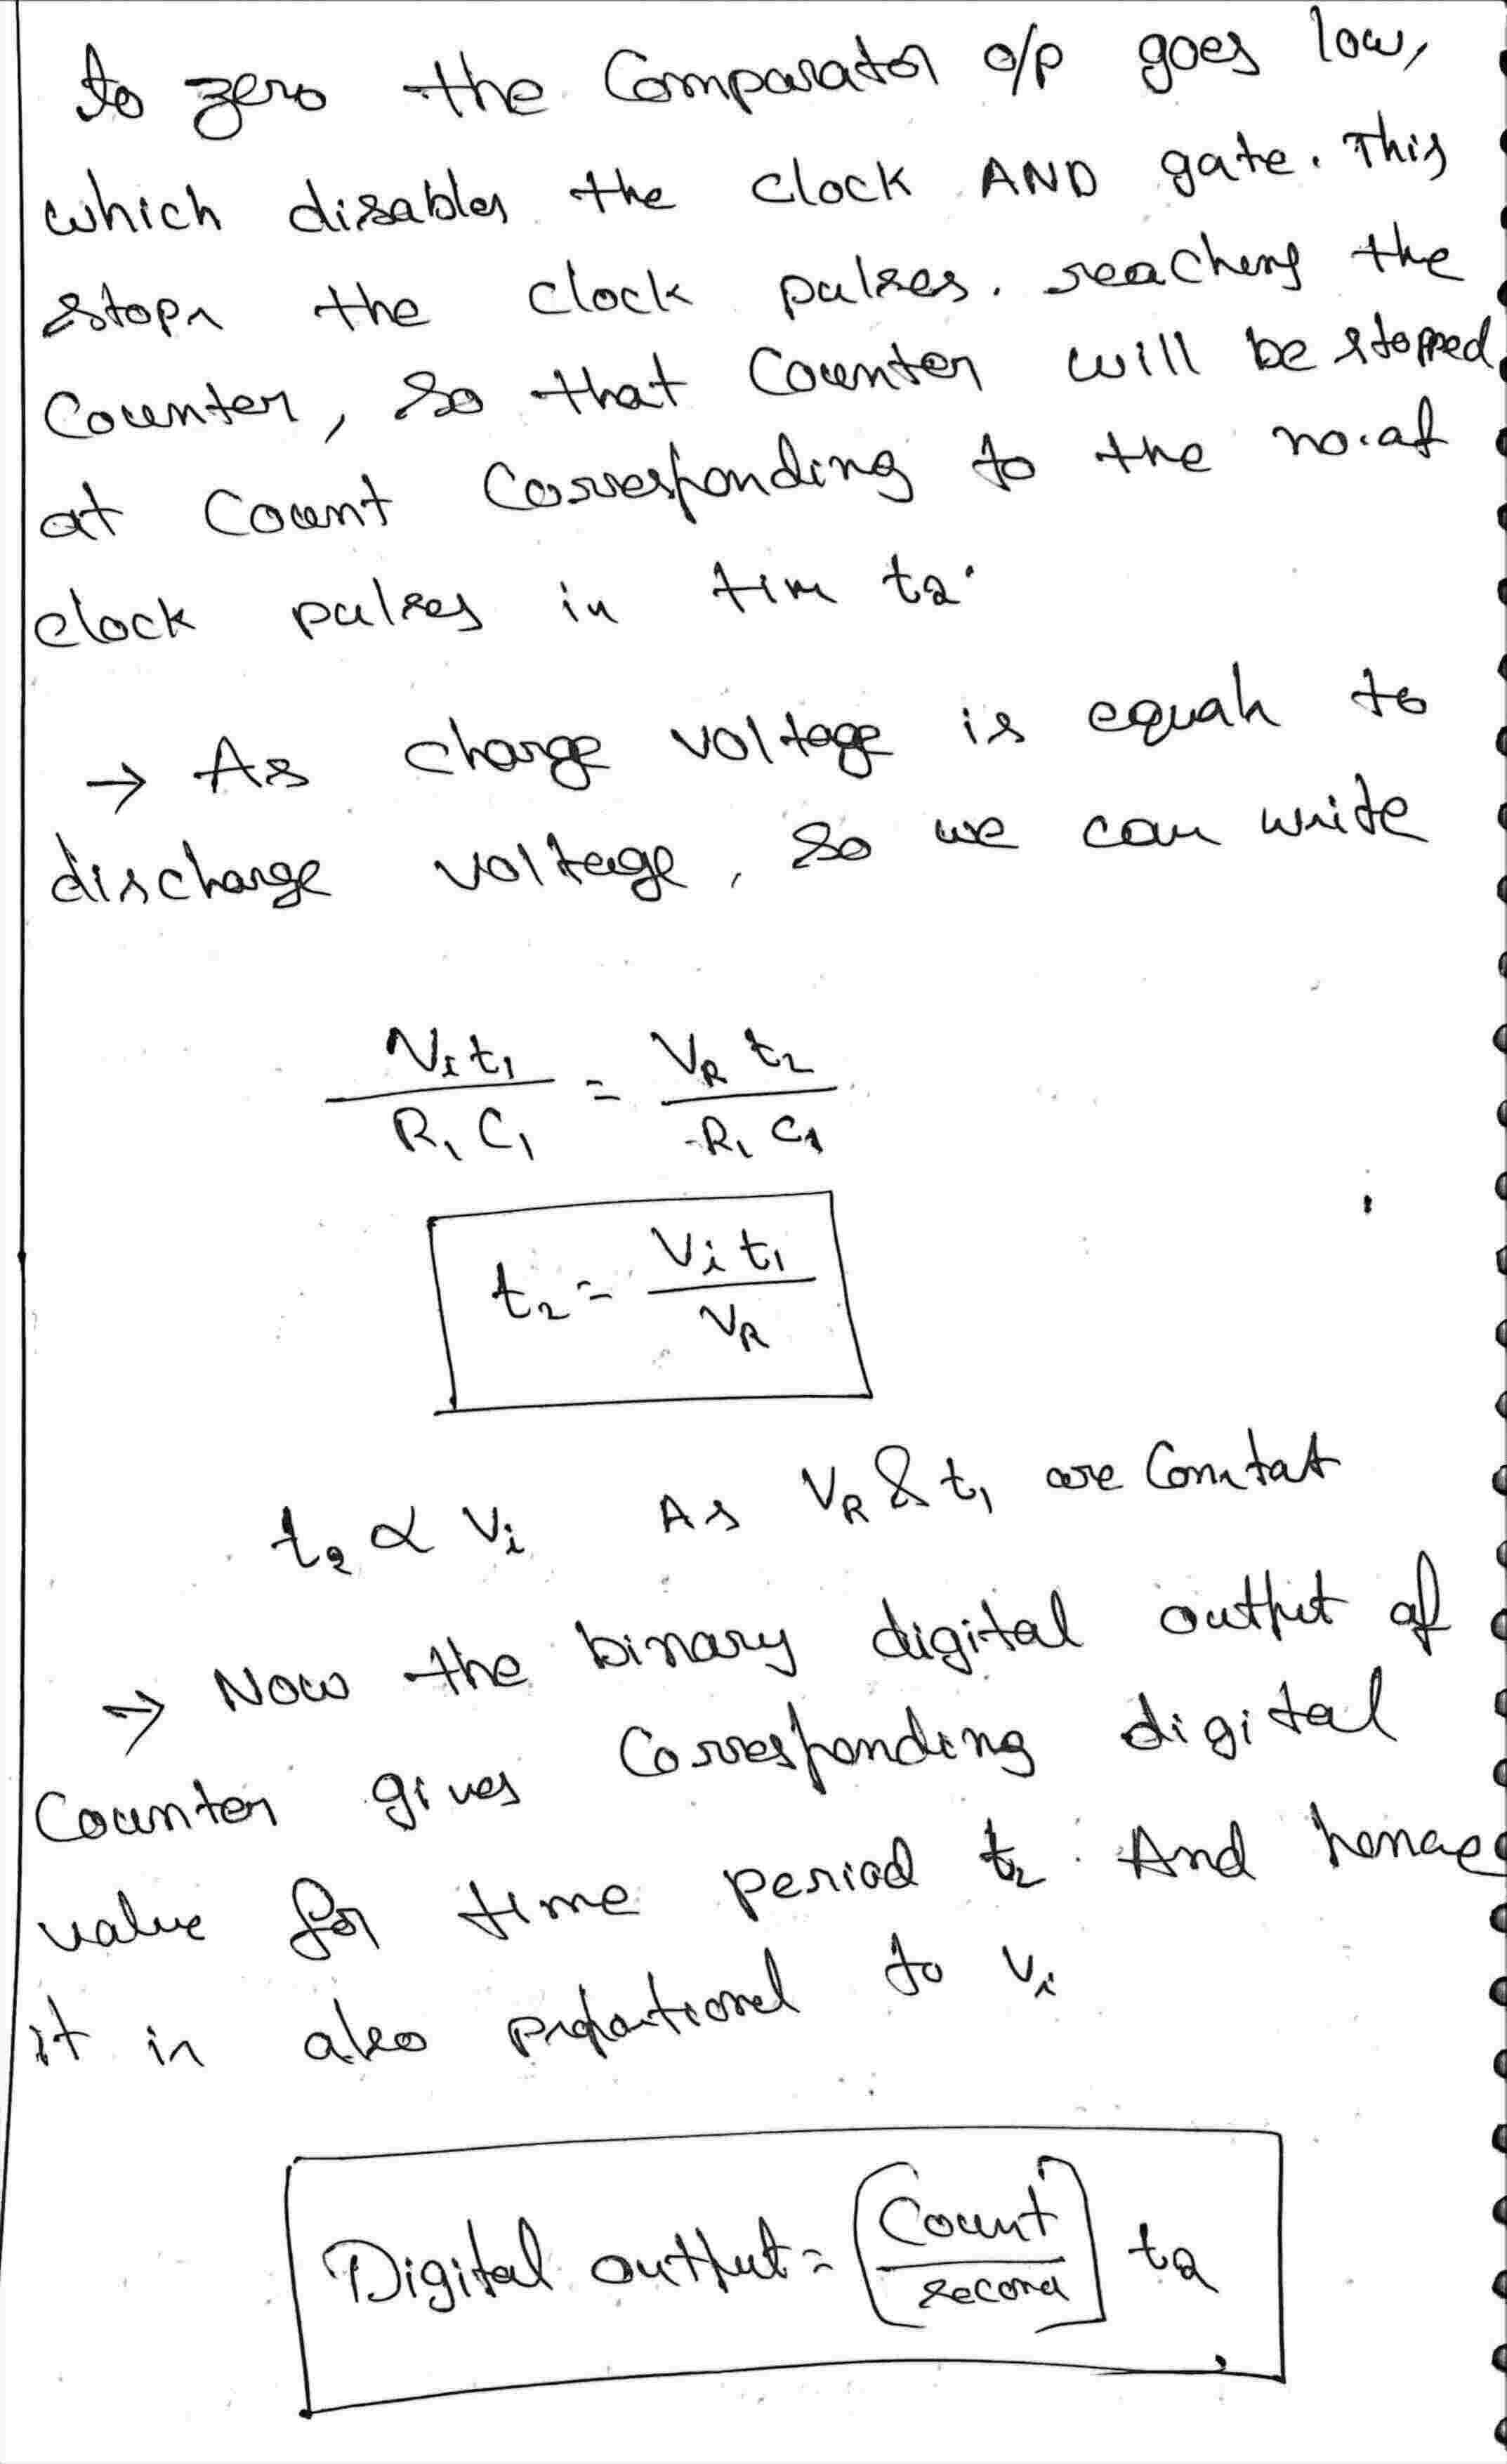 to zero the Comparator o/p goes low,
which disables the clock AND gate. This
stops the clock pulses. reaching the
Counter, so that Counter will be stopped
at Count Corresponding to the no. of
clock pulses in tim t2.
→ As charge voltage is equal to
discharge voltage, so we can write
Vi t1 / R1 C1 = VR t2 / R1 C1
t2 = Vi t1 / VR
t2 ∝ Vi As VR & t1 are Constat
→ Now the binary digital output of
Counter gives Corresponding digital
value for time period t2. And hence
it is also proportional to Vi
Digital output = [Count / second] t2